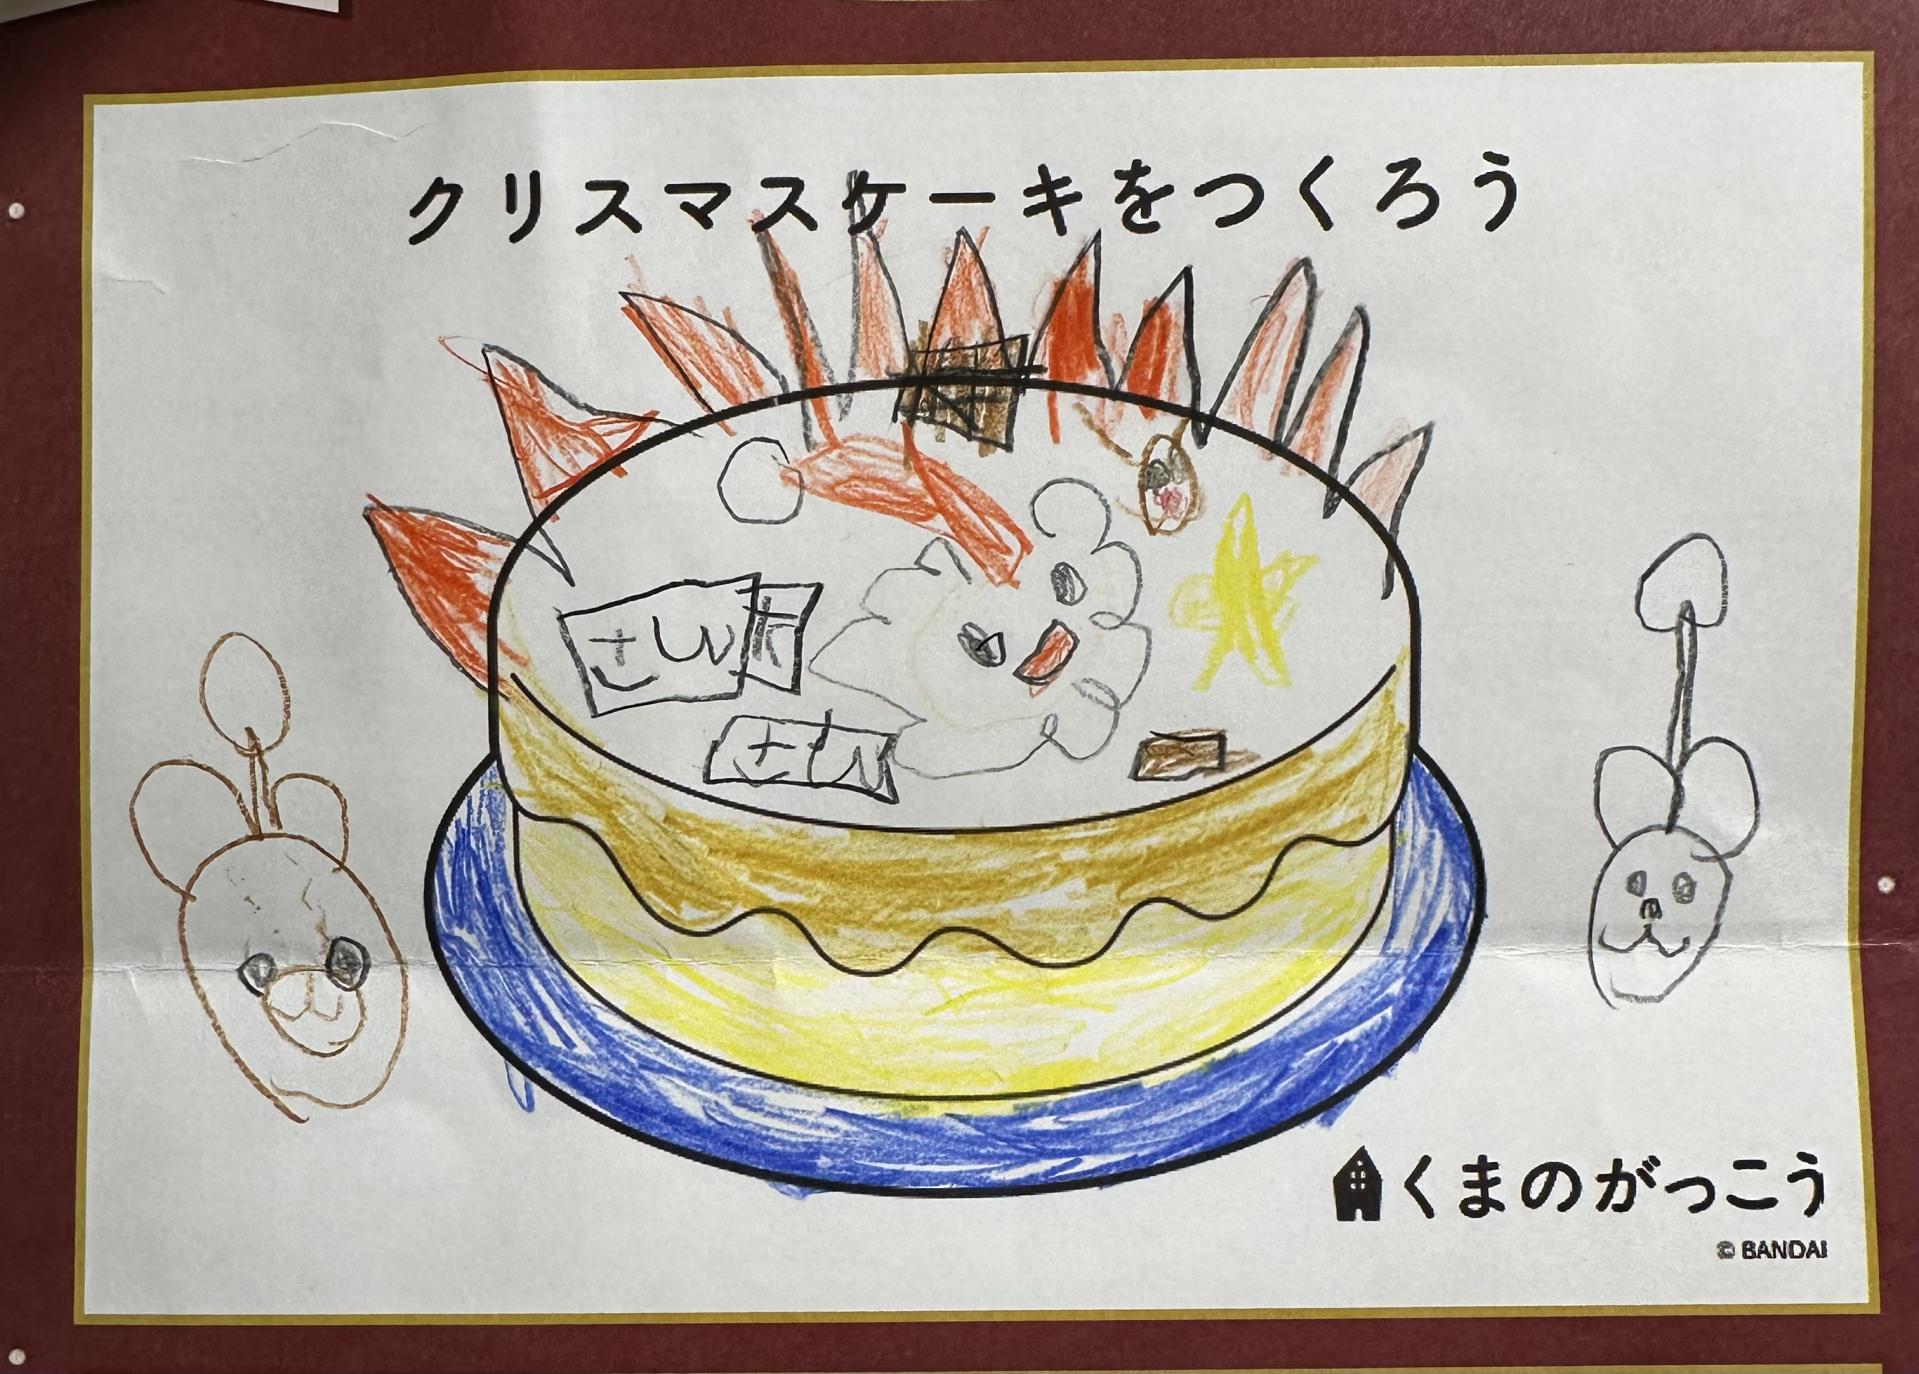 クリスマスケーキをつくろう
くまのがっこう
© BANDAI